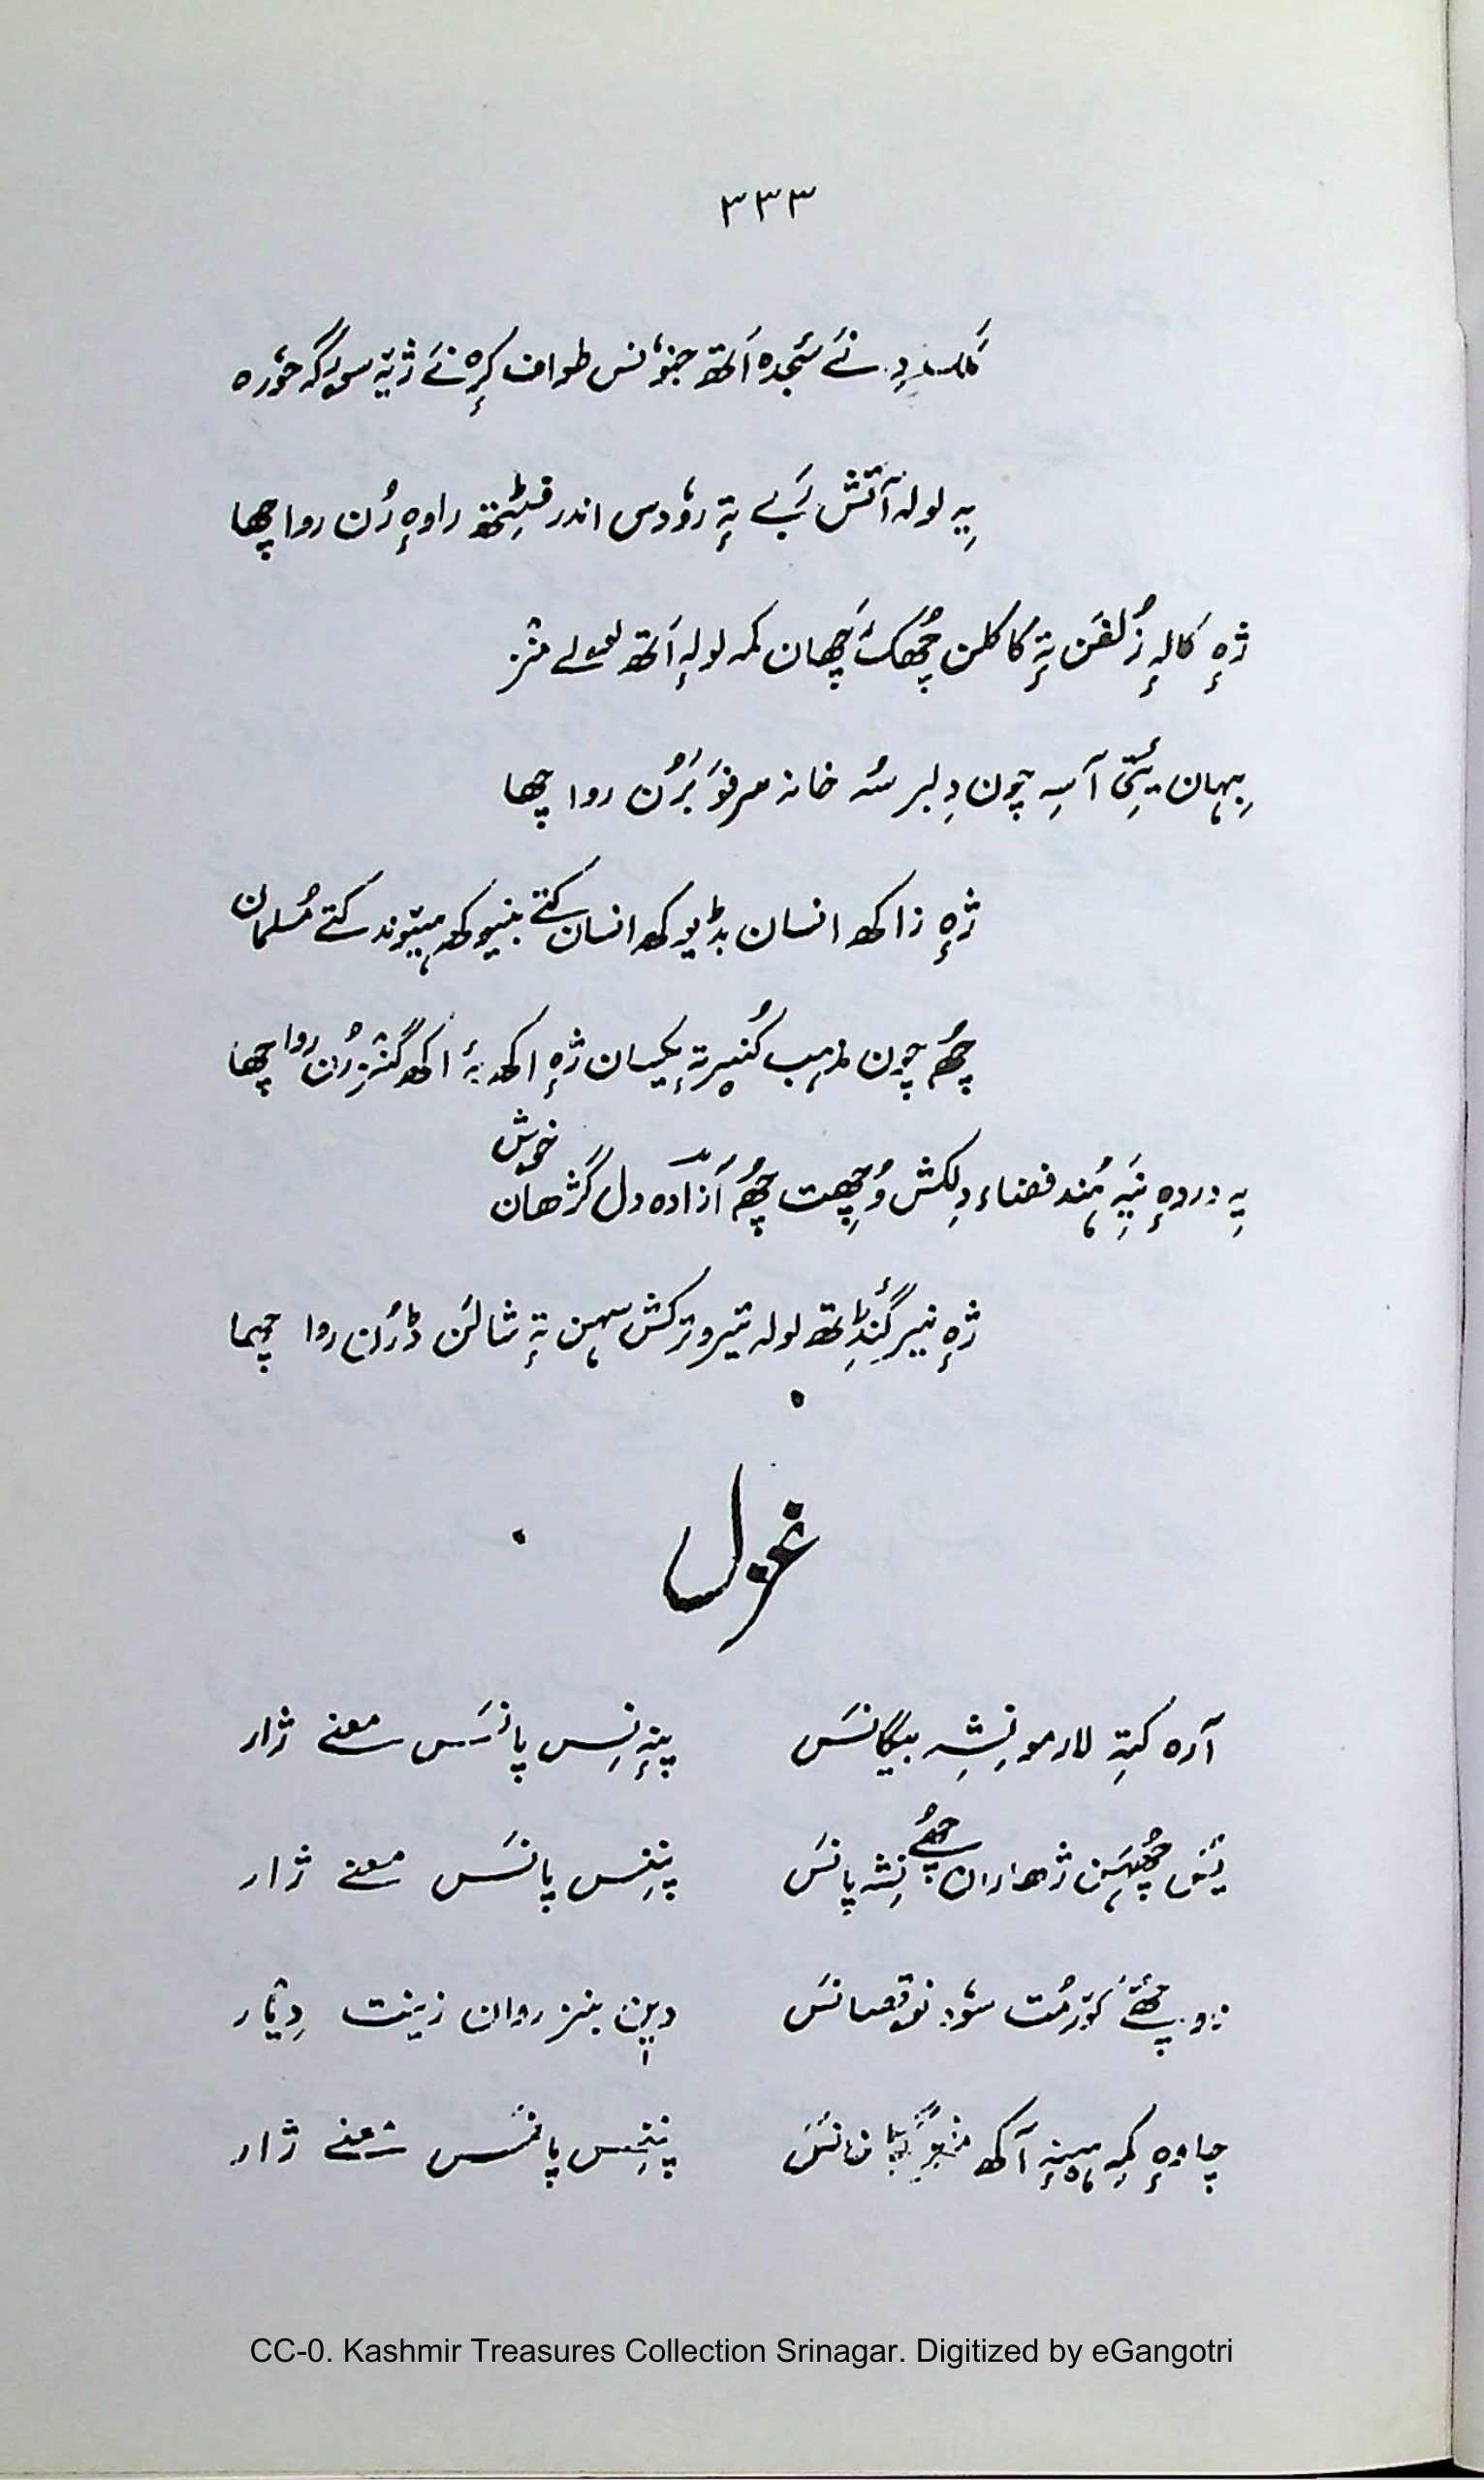 ۳۳۳
دِ نَے سَجدہ اَتھ جنوٗنس طواف کرٕہ نَے ژیتہٕ سورگہ حوٗرہ
یہِ لولہ آتش رَبے تہٕ روٗدس اندر فٹِتھ راوہٕ رُن روا چھا
ژہٕ کالہٕ زُلفن تہٕ کاکلن چھُکھ رَچھان کمہ لولہٕ اَتھ لعولے منٛز
بِہان یَتی آسہِ چون دِلبر سُہ خانہ صرفو بَرُن روا چھا
ژہٕ زاکھ انسان بڈیوکھ انسان کتے بنیوکھ ہیٚوند کتے مُسلمان
چھُ چون مذہب کُنیر تہٕ یکسان ژہٕ اکھ بہٕ اکھ گنٛزرُن روا چھا
یہِ دردہٕ نَیہِ ہُند فضاء دِلکش وُچھِت چھُ آزادہ دل گژھان خوش
ژہٕ نیر گنٛڈِتھ لولہ تیر و ترکش سہن تہٕ شالن ڈرُن روا چھا
غزل
آرہ کتہِ لارمو نِشہِ بیگانَس
پنہٕ نِس پانَس معنے ژار
یَس چھُہَن ژھاران چھُے نِشہ پانَس
پننِس پانَس معنے ژار
چھَے کوٚرمُت سوٗد نوقصانَس
دین ہنز روان زینت دِیار
چاوہٕ کمہِ ہینہٕ آکھ
پننِس پانَس معنے ژار
CC-0. Kashmir Treasures Collection Srinagar. Digitized by eGangotri